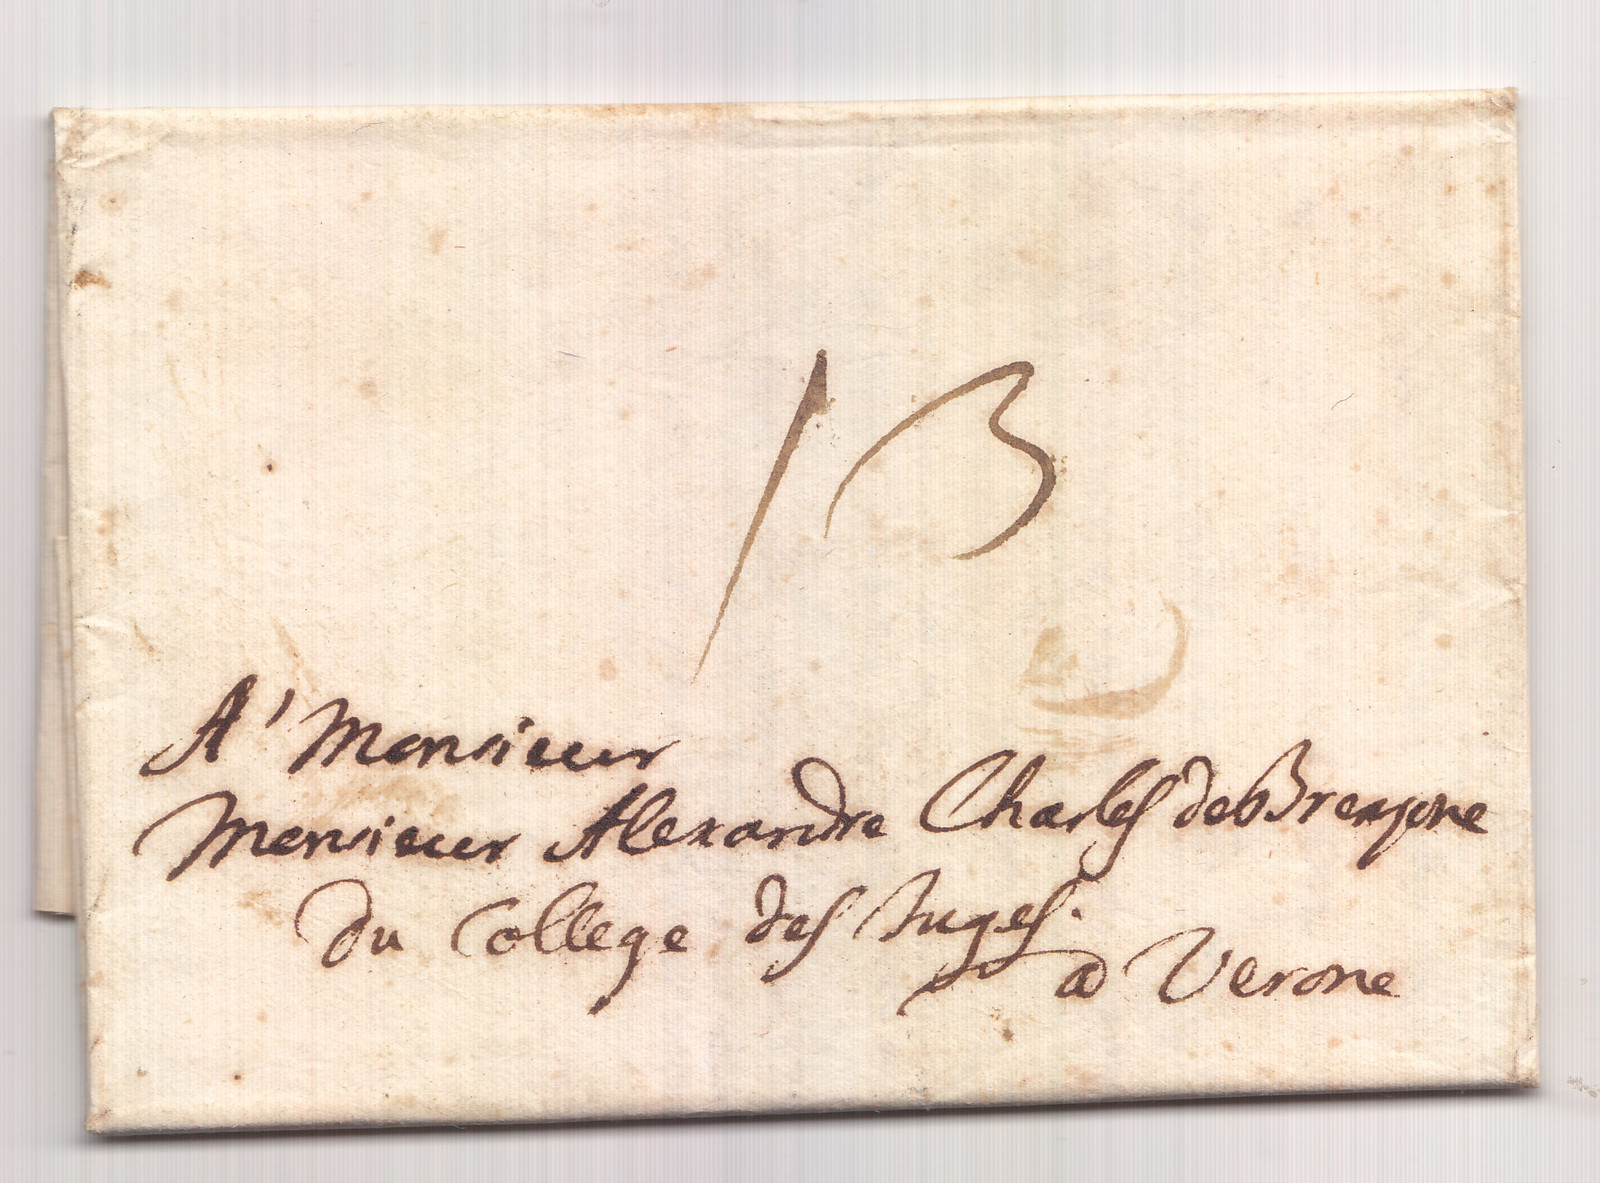 13
A' Monsieur
Monsieur Alexandre Charles de Brenzone
du College des Juges.
a Verone